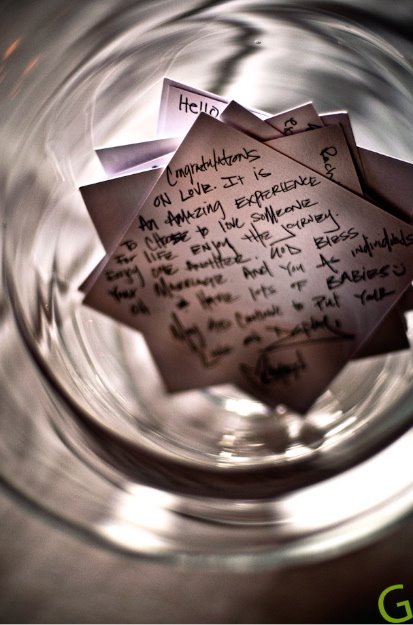 Hello
Congratulations
on Love. It is
An Amazing Experience
To choose to love someone
For life Enjoy the Journey.
Enjoy one another. God Bless
Your Marriage And You As individuals
Oh * Have lots of Babies
May God Continue to Put Your
Love on
G